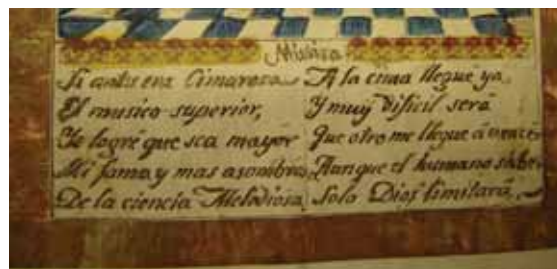 Musica
Si antes era Cimarosa
El musico superior,
Yo logré que sea mayor
Mi fama y mas asombro
De la ciencia Melodiosa
A la cima llegué ya
Y muy dificil será
Que otro me llegue á
Aunque el humano saber
Solo Dios limitará,